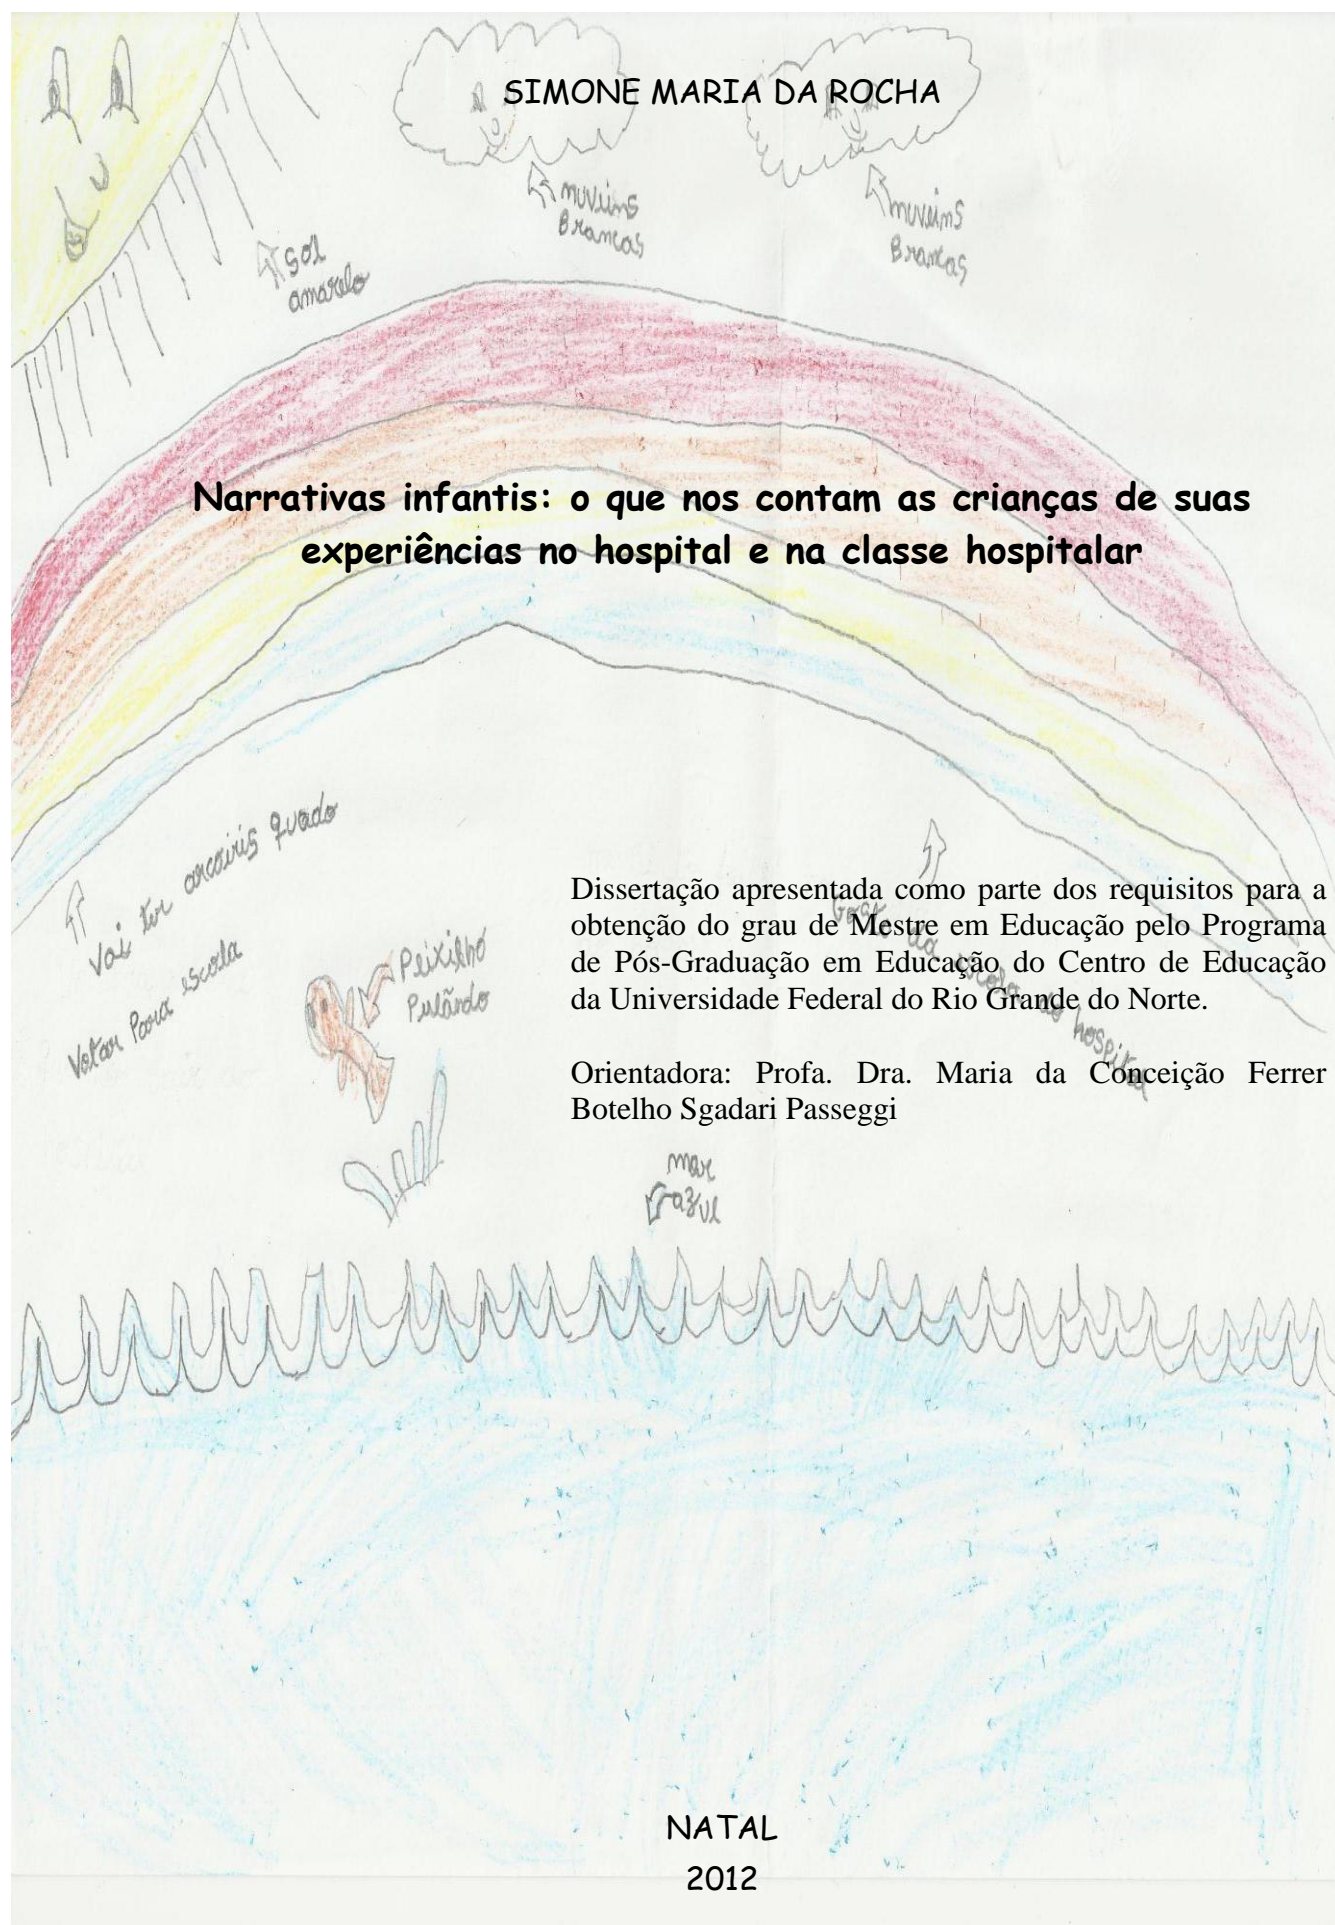 SIMONE MARIA DA ROCHA
nuveins
Brancas
nuveins
Brancas
sol
amarelo
Narrativas infantis: o que nos contam as crianças de suas
experiências no hospital e na classe hospitalar
Vai ter arcoiris quado
Votar Para escola
Peixilho
Pulãndo
Dissertação apresentada como parte dos requisitos para a
obtenção do grau de Mestre em Educação pelo Programa
de Pós-Graduação em Educação do Centro de Educação
da Universidade Federal do Rio Grande do Norte.
da escola do hospital
Orientadora: Profa. Dra. Maria da Conceição Ferrer
Botelho Sgadari Passeggi
mar
azul
NATAL
2012